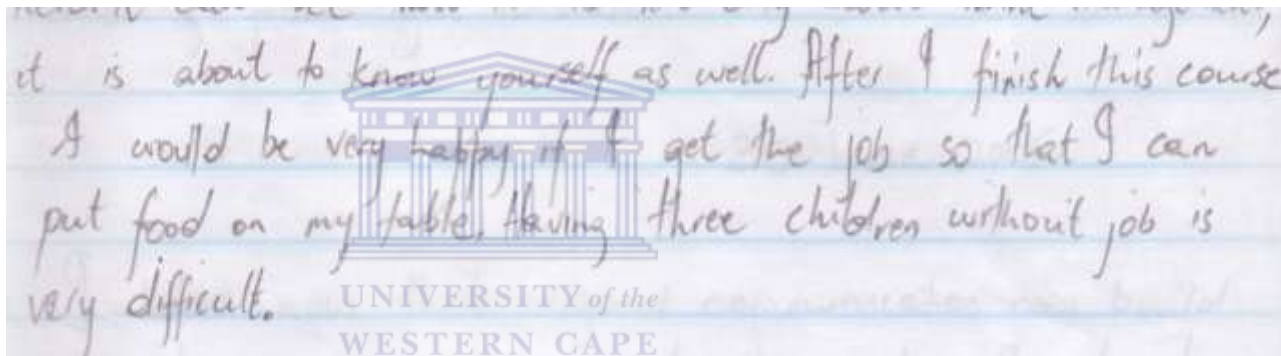 it is about to know yourself as well. After I finish this course
I would be very happy if I get the job so that I can
put food on my table. Having three children without job is
very difficult.
UNIVERSITY of the
WESTERN CAPE